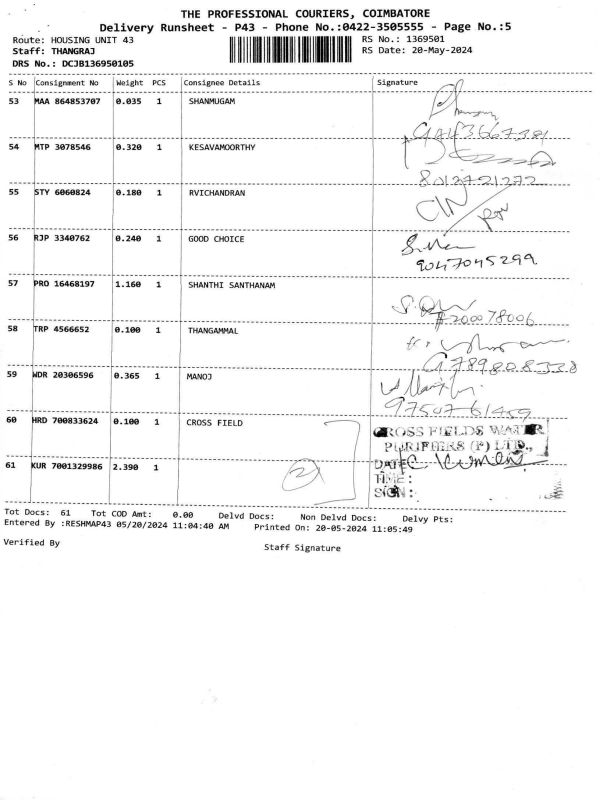 THE PROFESSIONAL COURIERS, COIMBATORE
Delivery Runsheet - P43 - Phone No.:0422-3505555 - Page No.:5
Route: HOUSING UNIT 43 RS No.: 1369501
Staff: THANGRAJ RS Date: 20-May-2024
DRS No.: DCJB136950105
S No Consignment No Weight PCS Consignee Details Signature
53 MAA 864853707 0.035 1 SHANMUGAM
54 MTP 3078546 0.320 1 KESAVAMOORTHY
8012721272
55 STY 6060824 0.180 1 RVICHANDRAN
56 RJP 3340762 0.240 1 GOOD CHOICE
9047045299
57 PRO 16468197 1.160 1 SHANTHI SANTHANAM
58 TRP 4566652 0.100 1 THANGAMMAL
59 WDR 20306596 0.365 1 MANOJ
9750761459
60 HRD 700833624 0.100 1 CROSS FIELD
CROSS FIELDS WATER
PURIFIERS (P) LTD.,
61 KUR 7001329986 2.390 1
2
DATE
TIME:
SIGN:
Tot Docs: 61 Tot COD Amt: 0.00 Delvd Docs: Non Delvd Docs: Delvy Pts:
Entered By :RESHMAP43 05/20/2024 11:04:40 AM Printed On: 20-05-2024 11:05:49
Verified By Staff Signature